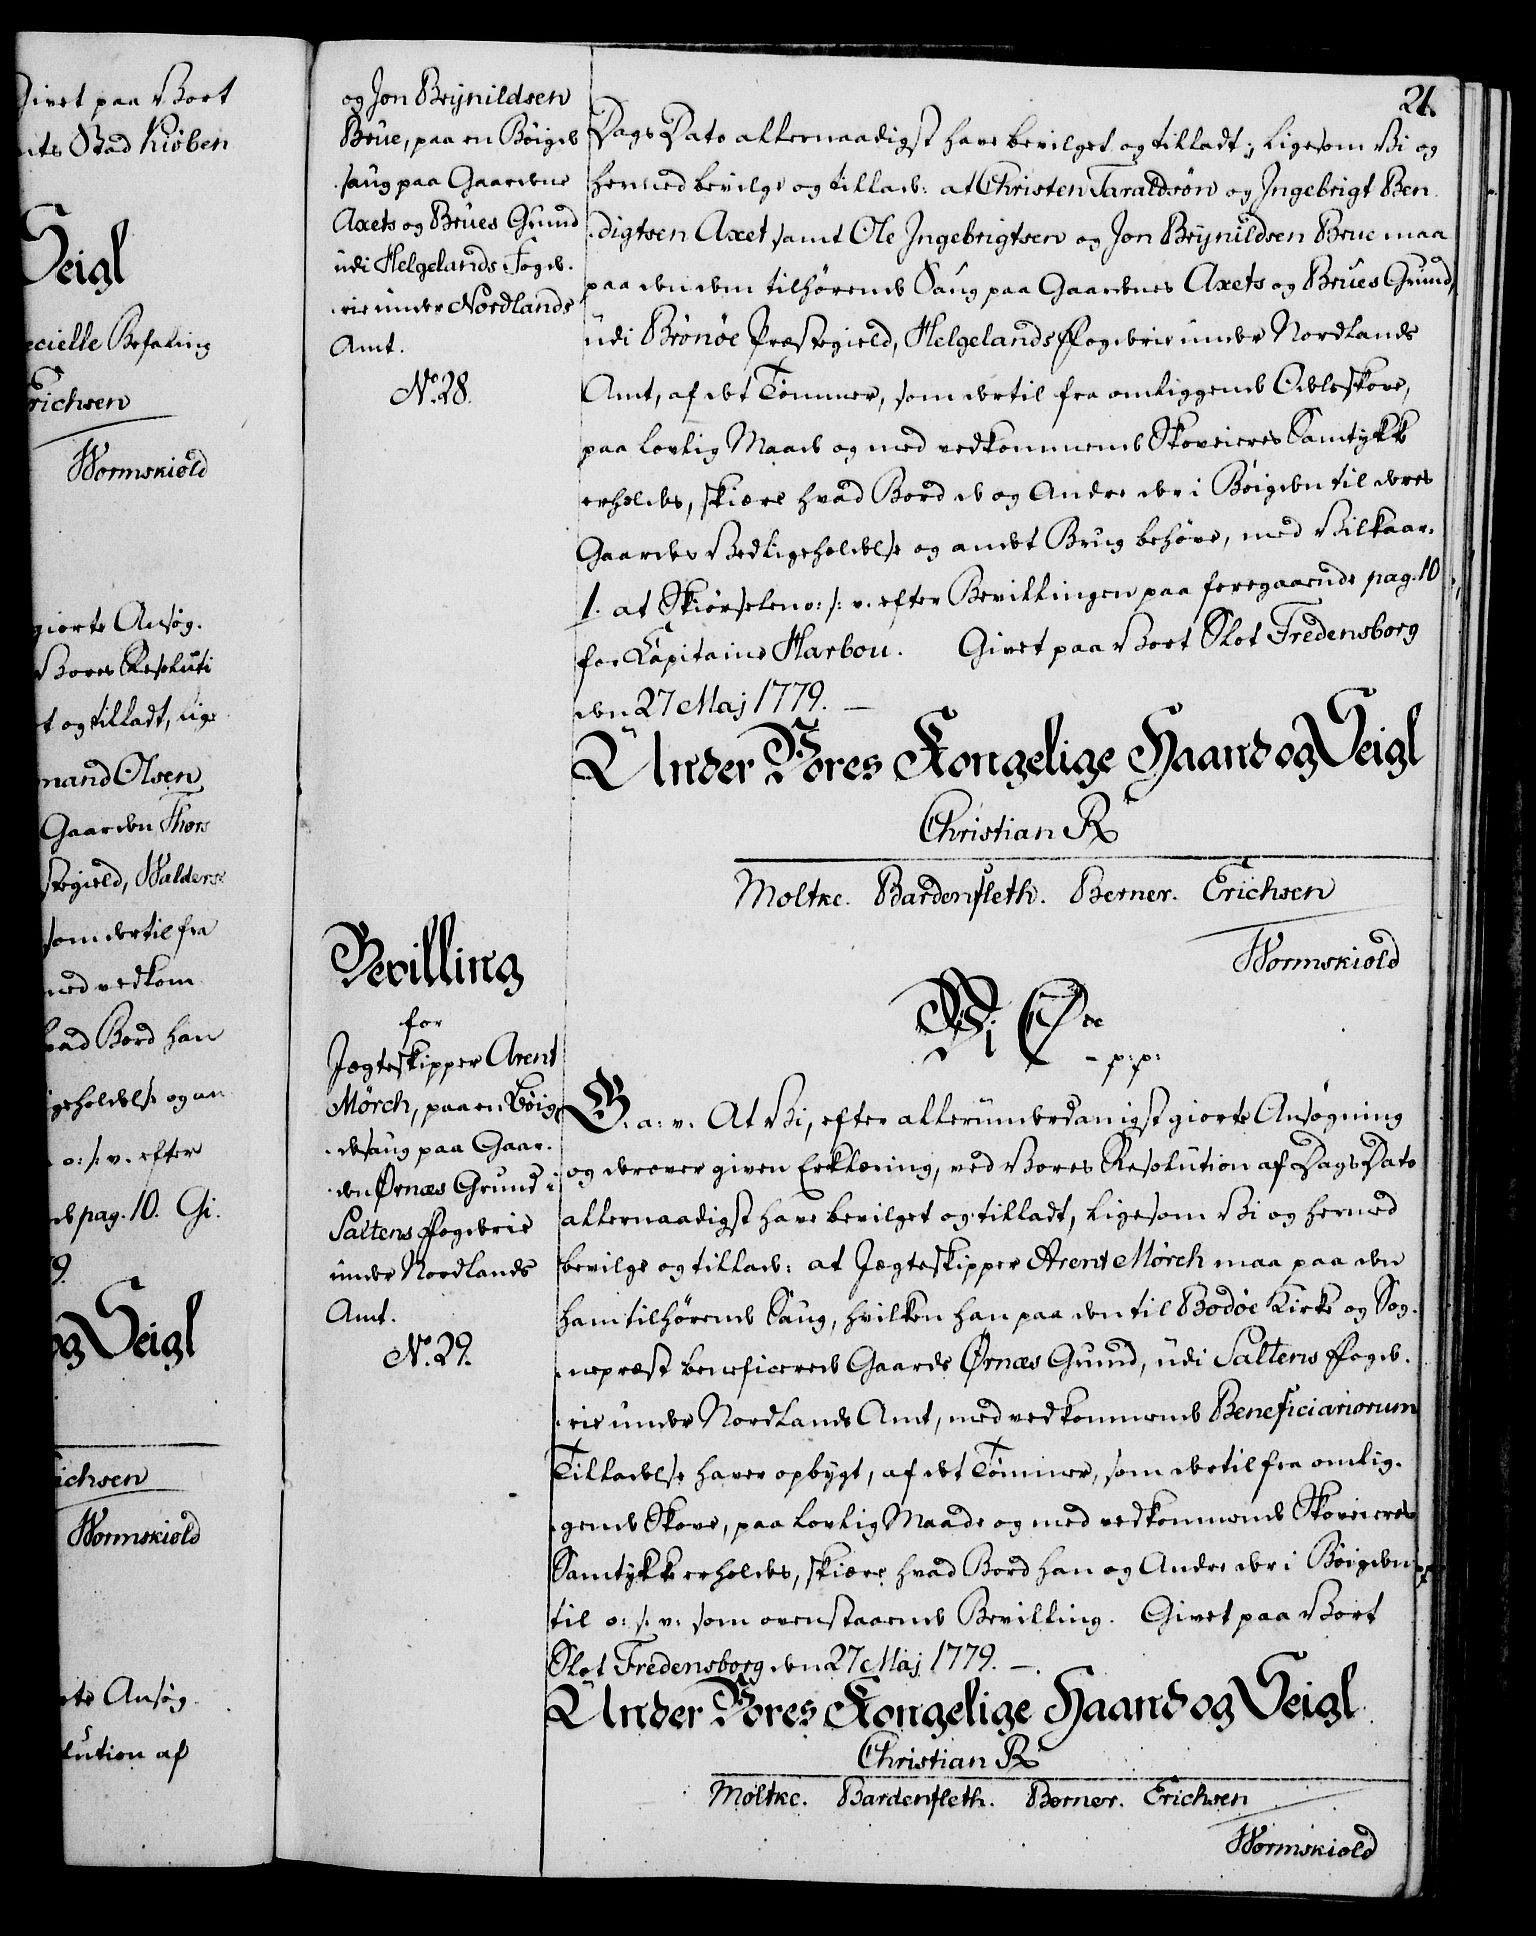 Givet paa Vort
nts Stad Kiöben
Seigl
ecielle Befaling
Erichsen
Wormskiold
giorte Ansøg.
Vores Resoluti
t og tilladt, lige
mand Olsen
Gaarden Thors
stegield, Walders
som dertil fra
med vedkom
hvad Bord han
igeholdelse og an
o: s: v. efter
de pag. 10. Gi.
9.
og Seigl
ichsen
Wormskiold
rte Ansøg.
lution af
21.
og Jon Brÿnildsen
Brue, paa en Böigde
saug paa Gaardene
Axets og Brues Grund
udi Helgelands Fogde.
rie under Nordlands
Amt.
No. 28.
Dags Dato allernaadigst have bevilget og tilladt; ligesom Vi og
hermed bevilge og tillade: at Christen Taraldsön og Ingebrigt Ben
digtsen Axet samt Ole Ingebrigtsen og Jon Brÿnildsen Brue maa
paa den dem tilhørende Saug paa Gaardenes Axets og Brues Grund,
udi Brönöe Præstegield, Helgelands Fogderie under Nordlands
Amt, af det Tömmer, som dertil fra omliggende Odelsskove,
paa lovlig Maade og med vedkommende Skoveieres Samtykke
erholdes, skiære hvad Bord de og Andre der i Böigden til deres
Gaardes Vedligeholdelse og andet Brug behöve, med Vilkaar.
1. at Skiörselen o: s: v. efter Bevillingen paa foregaaende pag. 10
for Capitaine Harbou. Givet paa Vort Slot Fredensborg
den 27 Maj 1779. —
Under Vores Kongelige Haand og Seigl
Christian R
Moltke. Bardenfleth. Berner. Erichsen
Wormskiold
Bevilling
for
Jægteskipper Arent
Mörch, paa en Böig
desaug paa Gaar.
den Ørnæs Grund i
Saltens Fogderie
under Nordlands
Amt.
No. 29.
Vi C
- p: p:
G. a: v. At Vi, efter allerunderdanigst giorte Ansøgning
og derover given Erklæring, ved Vores Resolution af Dags Dato
allernaadigst have bevilget og tilladt, ligesom Vi og hermed
bevilge og tillade: at Jægteskipper Arent Mörch maa paa den
ham tilhörende Saug, hvilken han paa den til Bodöe Kirke og Sog.
nepræst beneficerede Gaards Ørnæs Grund, udi Saltens Fogde.
rie under Nordlands Amt, med vedkommende Beneficiariorum
Tilladelse haver opbygt, af det Tömmer, som dertil fra omlig.
gende Skove, paa lovlig Maade og med vedkommende Skoveieres
Samtykke erholdes, skiære hvad Bord han og Andre der i Böigden
til o: s: v: som ovenstaaende Bevilling. Givet paa Vort
Slot Fredensborg den 27 Maj 1779. —
Under Vores Kongelige Haand og Seigl
Christian R
Moltke. Bardenfleth. Berner. Erichsen
Wormskiold